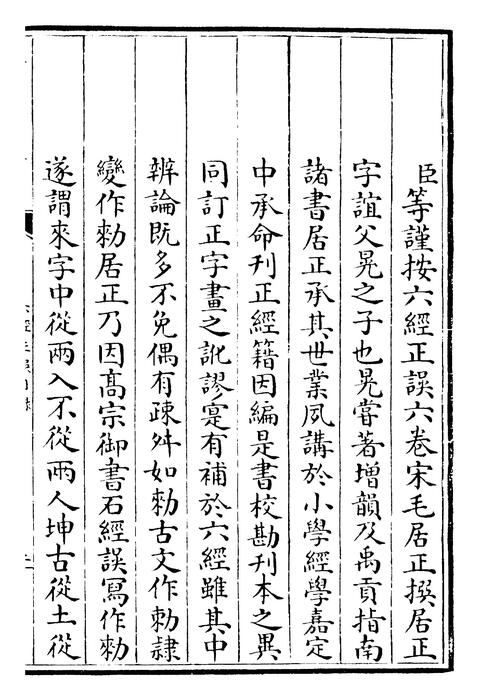 臣等謹按六經正誤六卷宋毛居正撰居正
字誼父晃之子也晃嘗著增韻及禹貢指南
諸書居正承其世業夙講於小學經學嘉定
中承命刊正經籍因編是書校勘刊本之異
同訂正字畫之訛謬寔有補於六經雖其中
辨論既多不免偶有疎舛如勑古文作勅隸
變作勑居正乃因髙宗御書石經誤寫作勑
遂謂來字中從兩入不從兩人坤古從土從